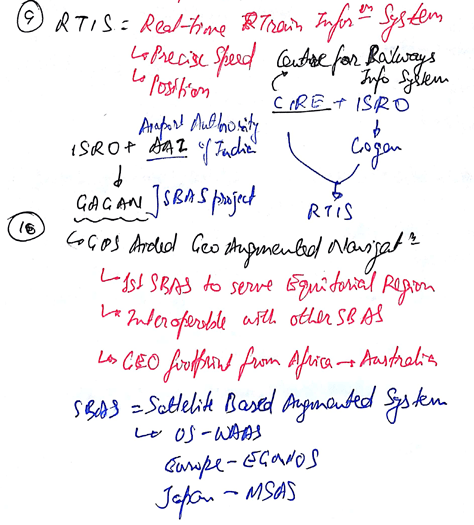 ⑨ RTIS = Real-time Train Infor^m System
↳ Precise Speed
↳ Position
Centre for Railways
Info System
CIRE + ISRO
Gagan
RTIS
Airport Authority
ISRO + AAI of India
GAGAN ] SBAS project
⑩
↳ GPS Aided Geo Augmented Navigatⁿ
↳ 1st SBAS to serve Equitorial Region
↳ Interoperable with other SBAS
↳ GEO footprint from Africa → Australia
SBAS = Sattelite Based Augmented System
↳ US - WAAS
Europe - EGNOS
Japan - MSAS